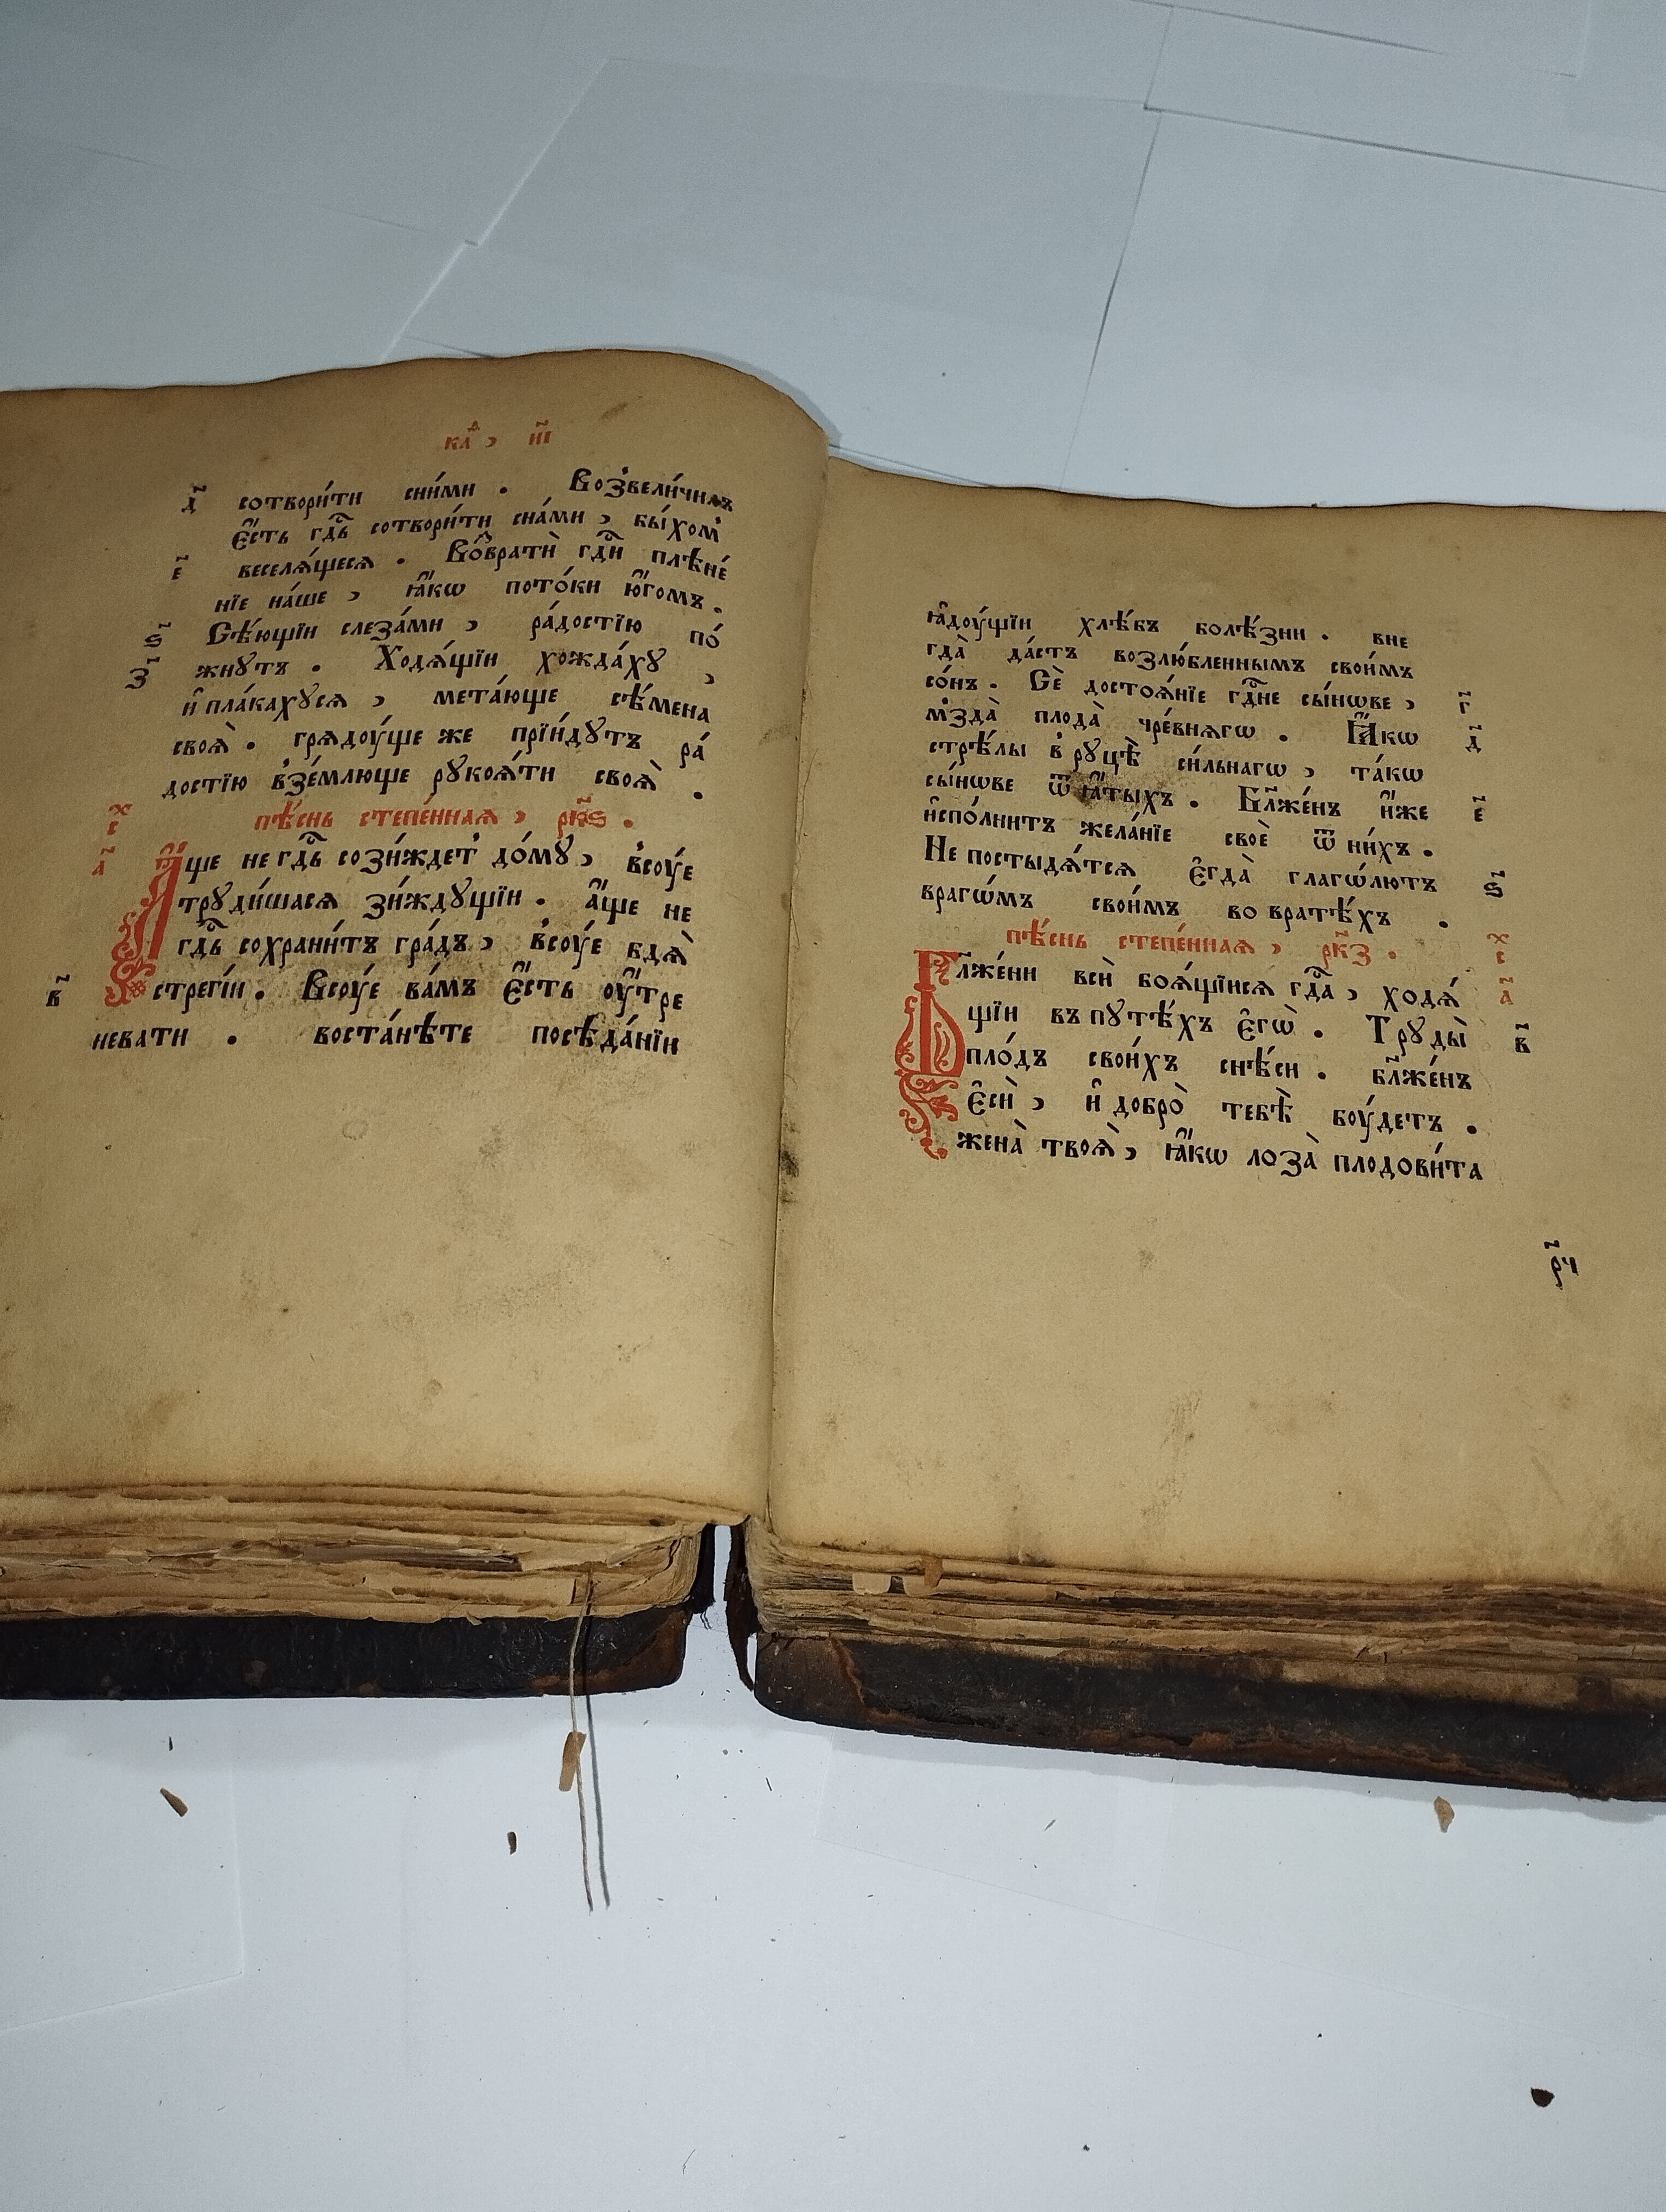 каⷴ, и҃і
д҃ сотвори́ти сни́ми . Возвели́чилъ
є҆́сть гдⷭ҇ь сотвори́ти сна́ми , бы́хом̾
е҃ веселѧ́щесѧ . Воⷥ҇вратѝ гдⷭ҇и плѣне́
нїе на́ше , ꙗ҆́кѡ пото́ки ю҆́гомъ .
ѕ҃ Сѣ́ющїи слеза́ми , ра́достїю по́
з҃ жнꙋтъ . Ходѧ́щїи хожда́хꙋ ,
и҆ пла́кахꙋсѧ , мета́юще сѣ́мена
своѧ̀ . грѧдоу́ще же прїи́дꙋтъ ра́
достїю в̾зе́млюще рꙋкоѧ́ти своѧ̀ .
пѣ́снь степе́ннаѧ , рк҃ѕ .
а҃ А҆́ще не гдⷭ҇ь сози́ждет̾ до́мꙋ , в̾соу́е
трꙋди́шасѧ зи́ждꙋщїи . а҆́ще не
гдⷭ҇ь сохрани́тъ гра́дъ , в̾соу́е бдѧ̀
в҃ стрегі́и . Всоу́е ва́мъ є҆́сть оу҆́тре
невати . воста́нѣте посѣда́нїи
ꙗ҆доу́щїи хлѣ́бъ болѣ́зни . вне
гда̀ да́стъ возлю́бленнымъ свои́мъ
со́нъ . Сѐ достоѧ́нїе гдⷭ҇не сы́нѡве , г҃
м̾зда̀ плода̀ чре́внѧгѡ . Ꙗ҆́кѡ д҃
стрѣ́лы в̾ рꙋцѣ̀ си́льнагѡ , та́кѡ
сы́нѡве ѿ ꙗ҆́тыхъ . Бл҃же́нъ и҆́же е҃
и҆спо́лнитъ жела́нїе своѐ ѿ ни́хъ .
Не постыдѧ́тсѧ є҆гда̀ глаго́лютъ ѕ҃
врагѡ́мъ свои́мъ во вратѣ́хъ .
пѣ́снь степе́ннаѧ , рк҃з .
Бл҃же́ни всѝ боѧ́щїисѧ гдⷭ҇а , ходѧ́ а҃
щїи въ пꙋтѣ́хъ є҆гѡ̀ . Трꙋды̀ в҃
пло́дъ свои́хъ снѣ́си . бл҃же́нъ
є҆сѝ , и҆ добро̀ тебѣ̀ боу́детъ .
жена̀ твоѧ̀ , ꙗ҆́кѡ лоза̀ плодови́та
рч҃